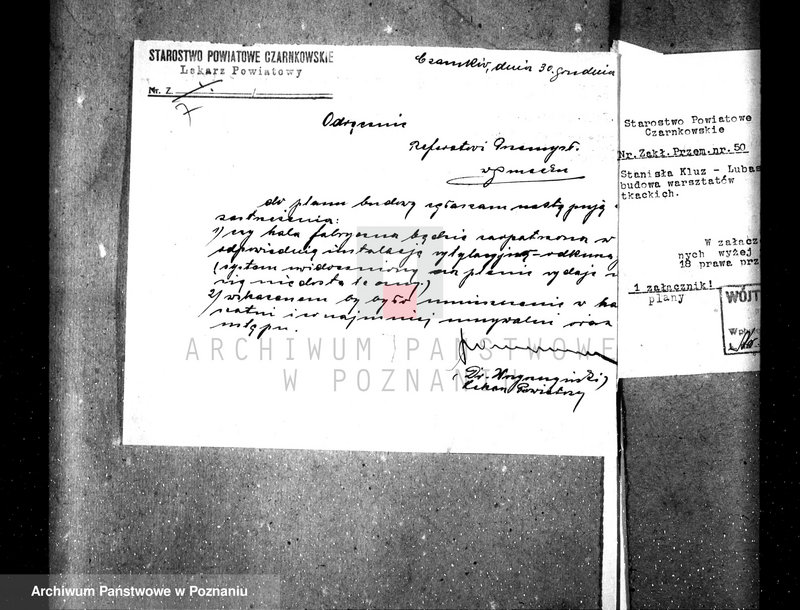 STAROSTWO POWIATOWE CZARNKOWSKIE
Lekarz Powiatowy
Nr. Z.
Czarnków, dnia 30. grudnia
Odręcznie
Referatowi Przemysł.
w miejscu
do planu budowy zgłaszam następują
zastrzeżenia:
1) czy hala fabryczna będzie zaopatrzona w
odpowiednią instalację
(system uwidoczniony na planie wydaje
się niedostateczny.)
2) wskazanem by było umieszczenie w
i conajmniej umywalni oraz
ustępu.
Lekarz Powiatowy
Starostwo Powiatowe
Czarnkowskie
Nr.Zakł.Przem.nr.50
Stanisła Kluz - Lubas
budowa warsztatów
tkackich.
W załącz
nych wyżej
18 prawa prz
1 załącznik!
plany
WÓJT
ARCHIWUM PAŃSTWOWE
W POZNANIU
Archiwum Państwowe w Poznaniu